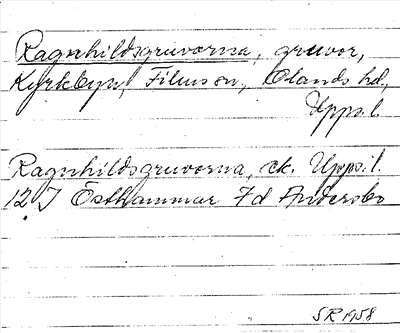 Ragnhildsgruvorna, gruvor,
Kyrkbyn, Films sn, Olands hd,
Upps. l.
Ragnhildsgruvorna, ek. Upps. l.
12 I Östhammar 7d Andersbo
SR 1958